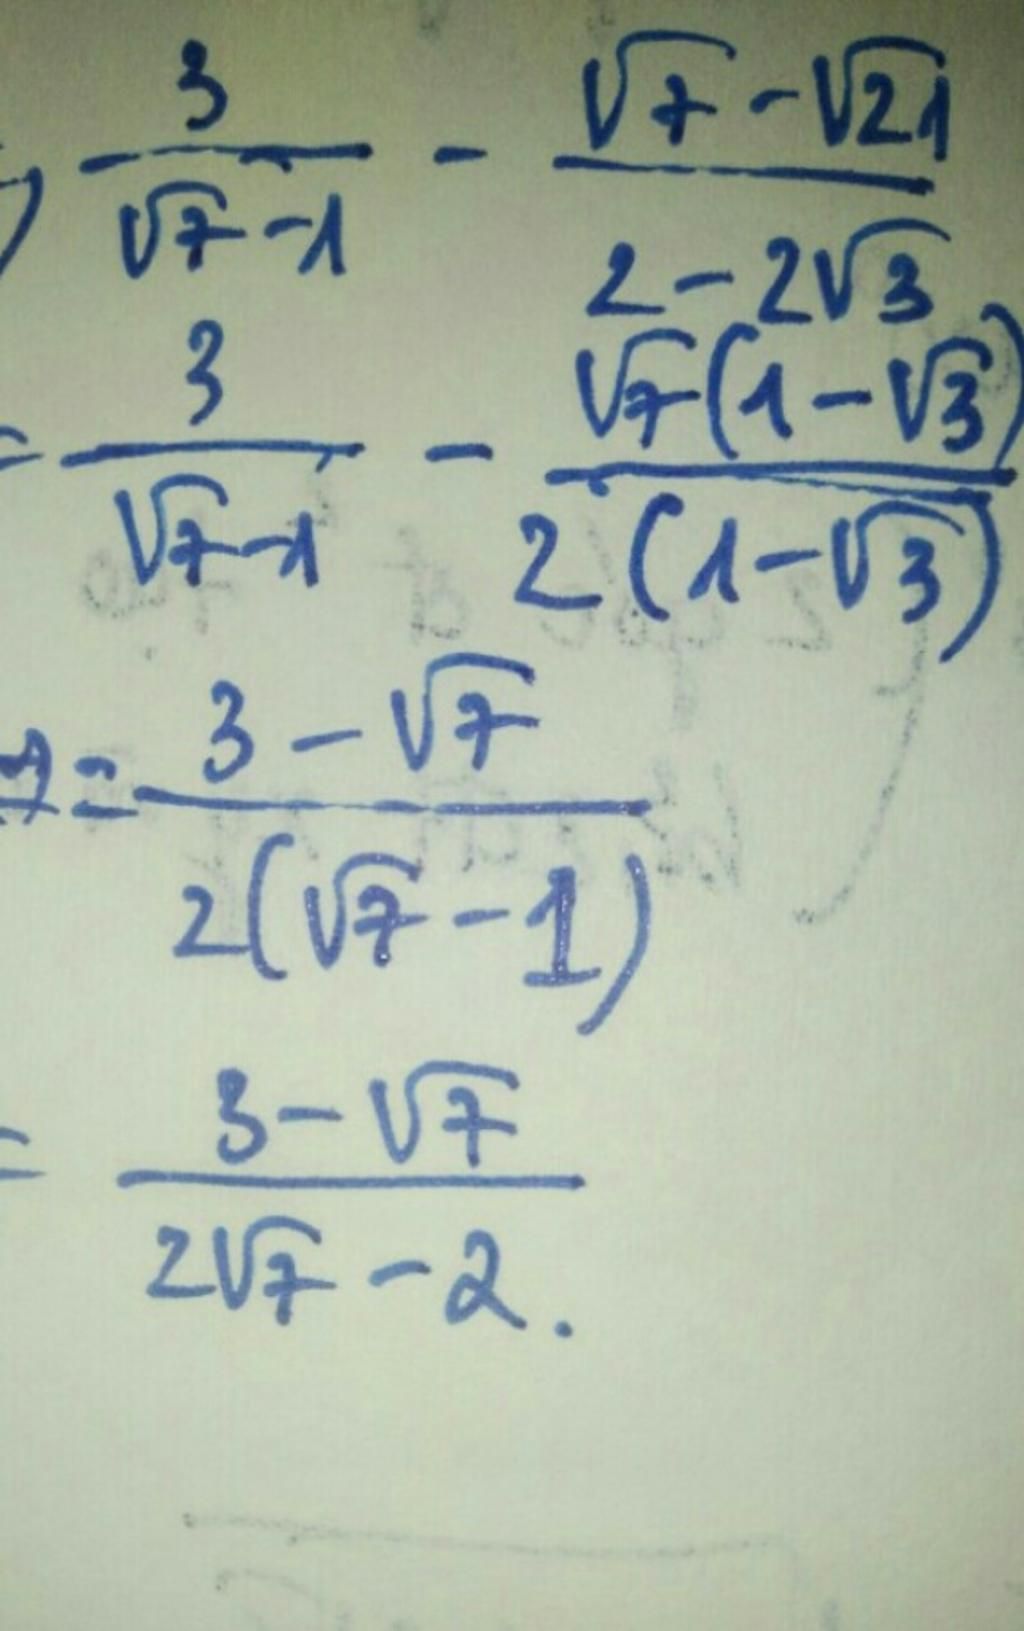 3/(√7-1) - (√7-√21)/(2-2√3)
= 3/(√7-1) - √7(1-√3)/(2(1-√3))
= (3-√7)/(2(√7-1))
= (3-√7)/(2√7-2).